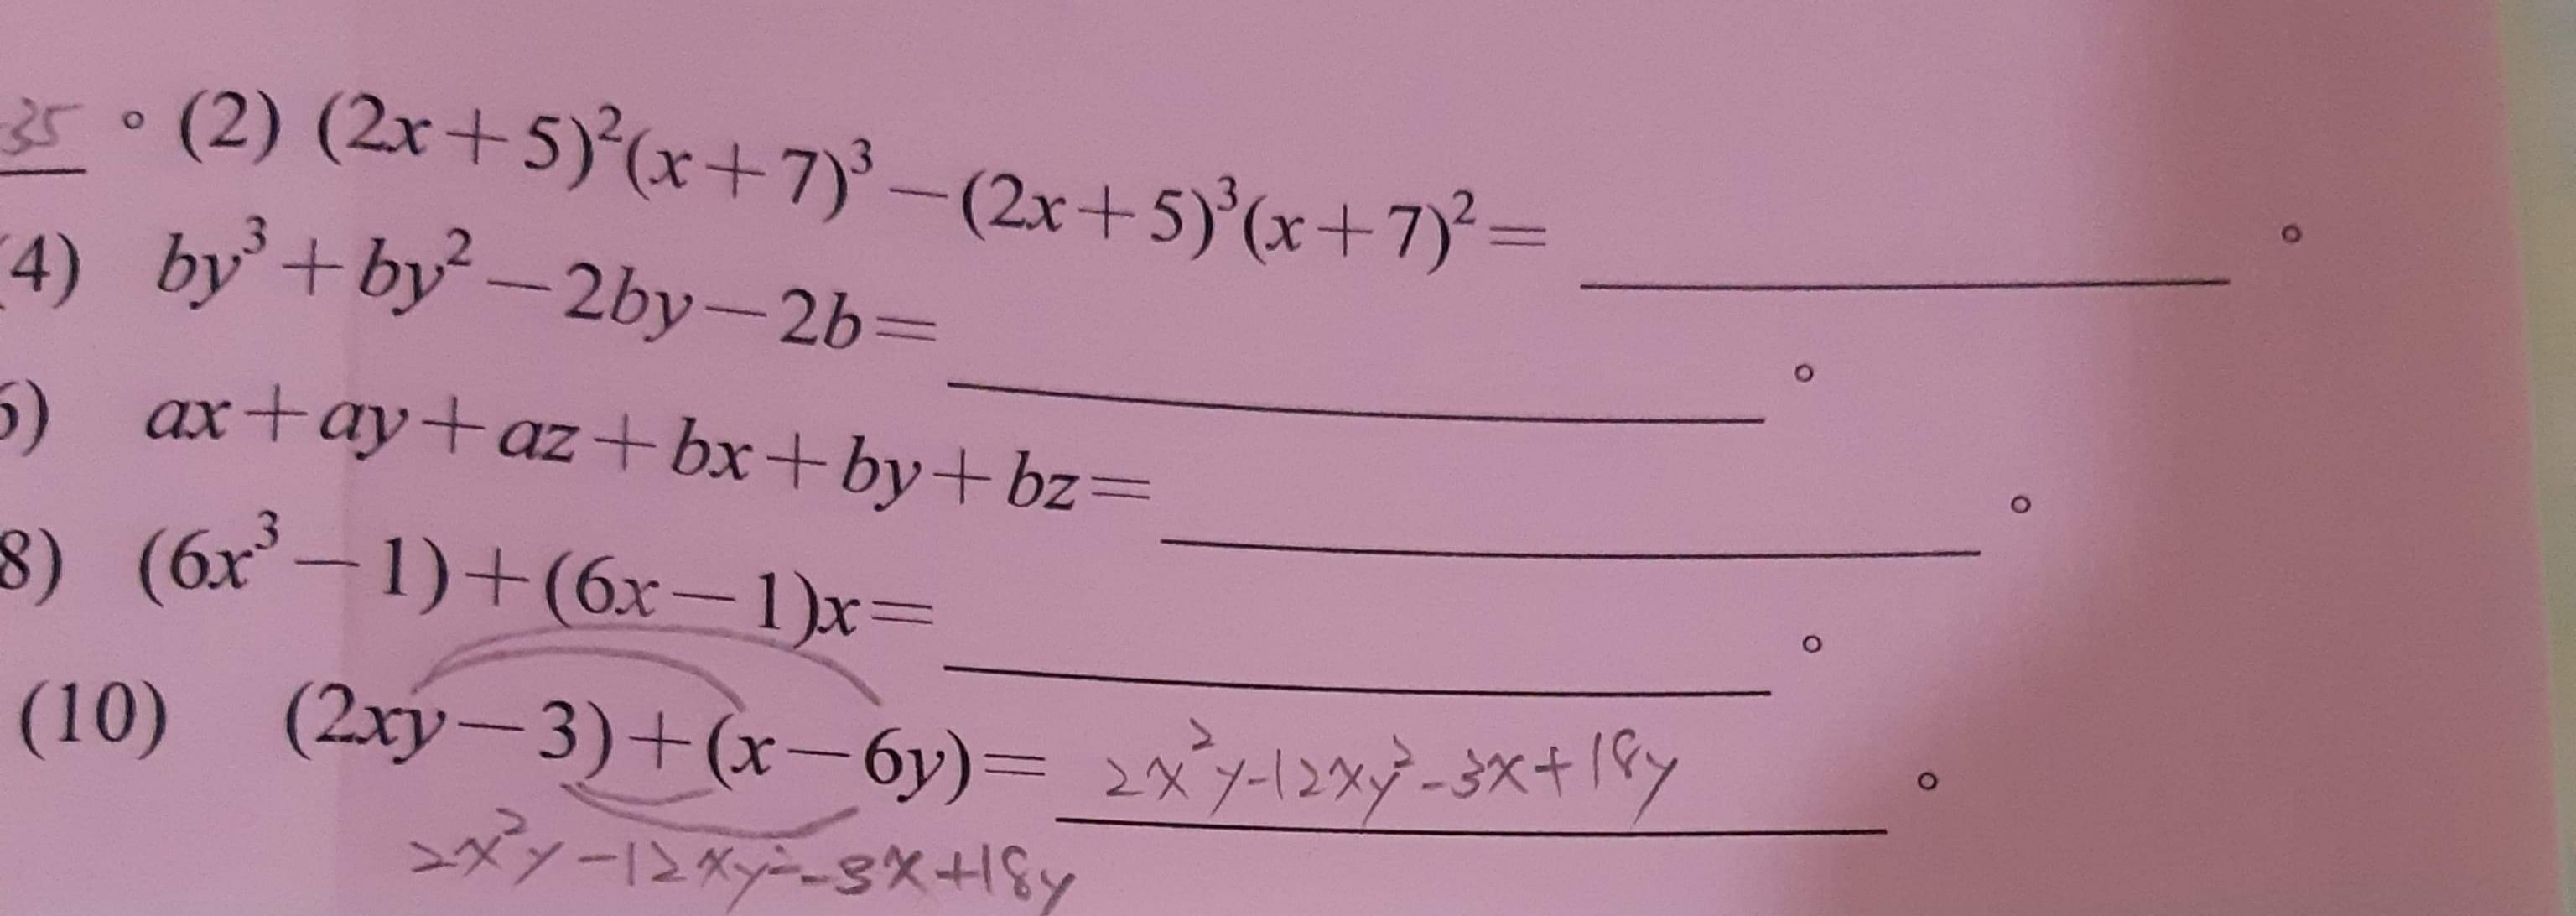 35 。(2) (2x+5)²(x+7)³−(2x+5)³(x+7)²= 。
4) by³+by²−2by−2b= 。
) ax+ay+az+bx+by+bz= 。
8) (6x³−1)+(6x−1)x= 。
(10) (2xy−3)+(x−6y)= 2x²y-12xy²-3x+18y 。
2x²y-12xy²-3x+18y